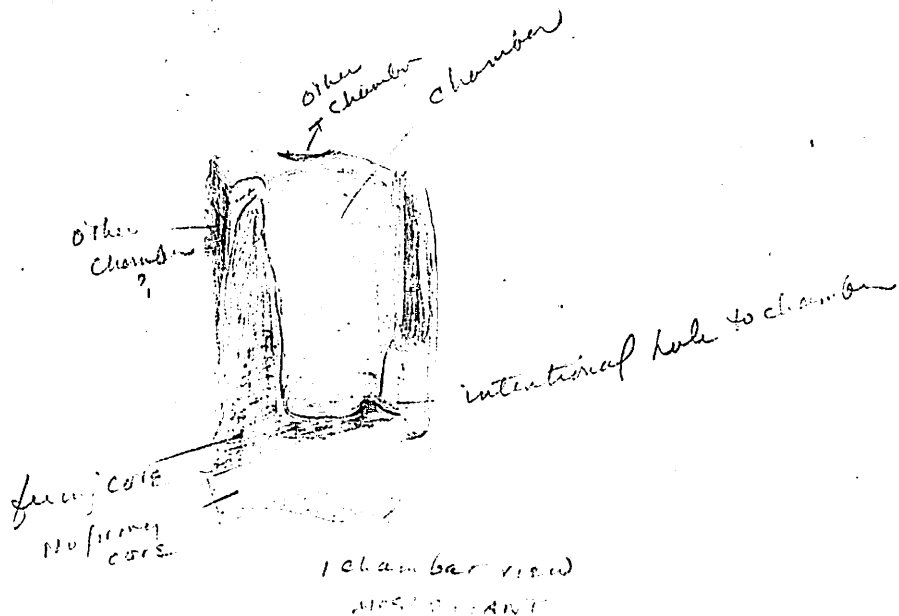 other
chamber
chamber
other
chamber
?
intentional hole to chamber
firing core
No firing
core
1 chamber view